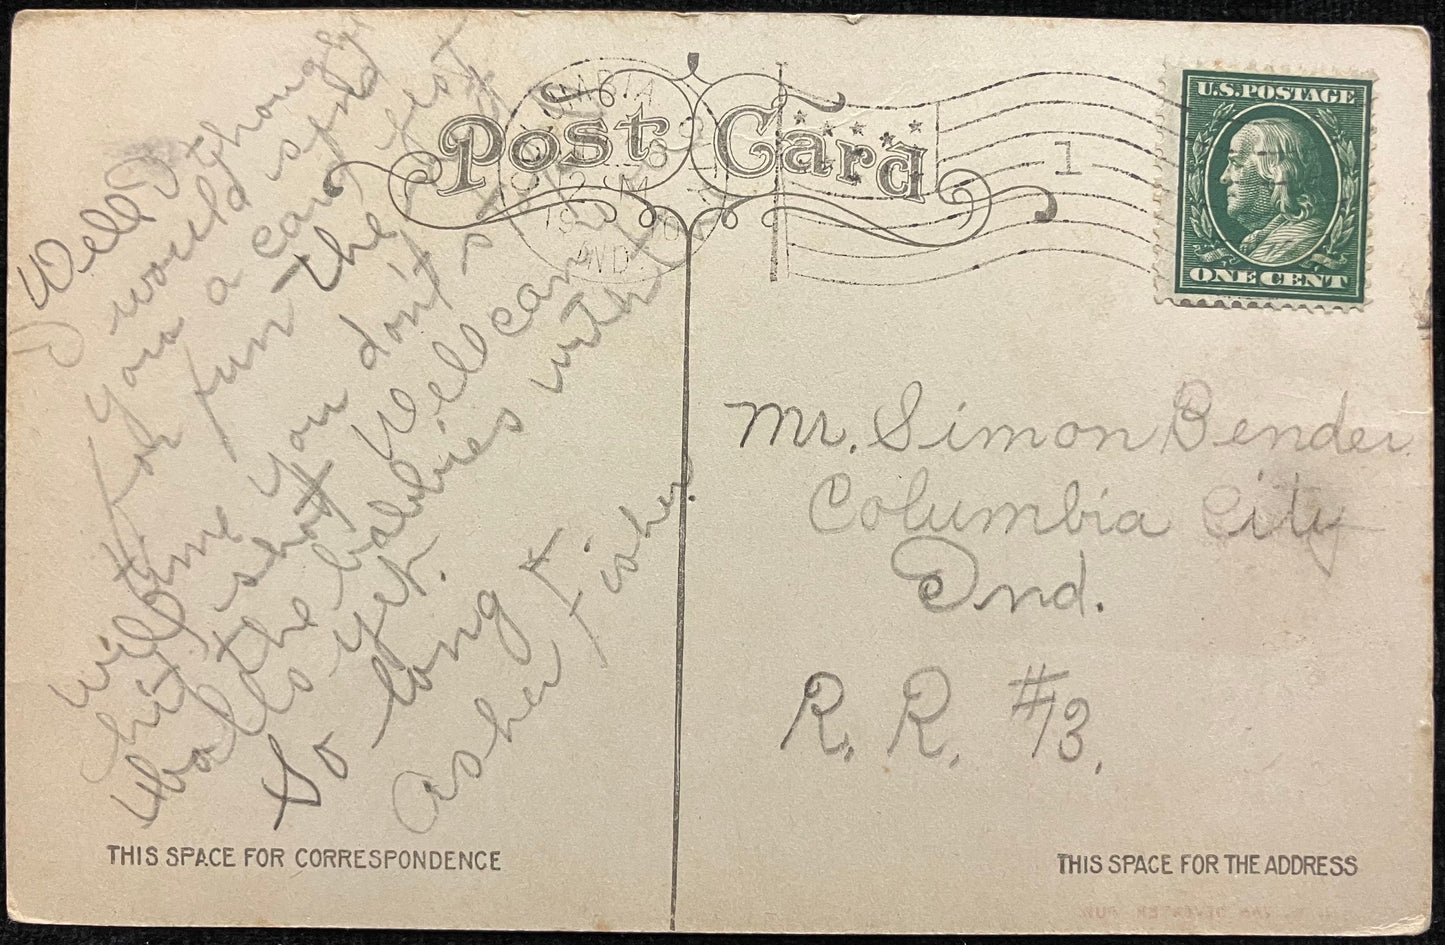 Post Card
U.S. POSTAGE
ONE CENT
1
IND.
Well I though
I would send
you a card
for fun the rest
will me you don't
hit, shot
walls Well can
the babbies with
yet.
So long
Asher Fisher.
Mr. Simon Bender
Columbia City
Ind.
R. R. #3.
THIS SPACE FOR CORRESPONDENCE
THIS SPACE FOR THE ADDRESS